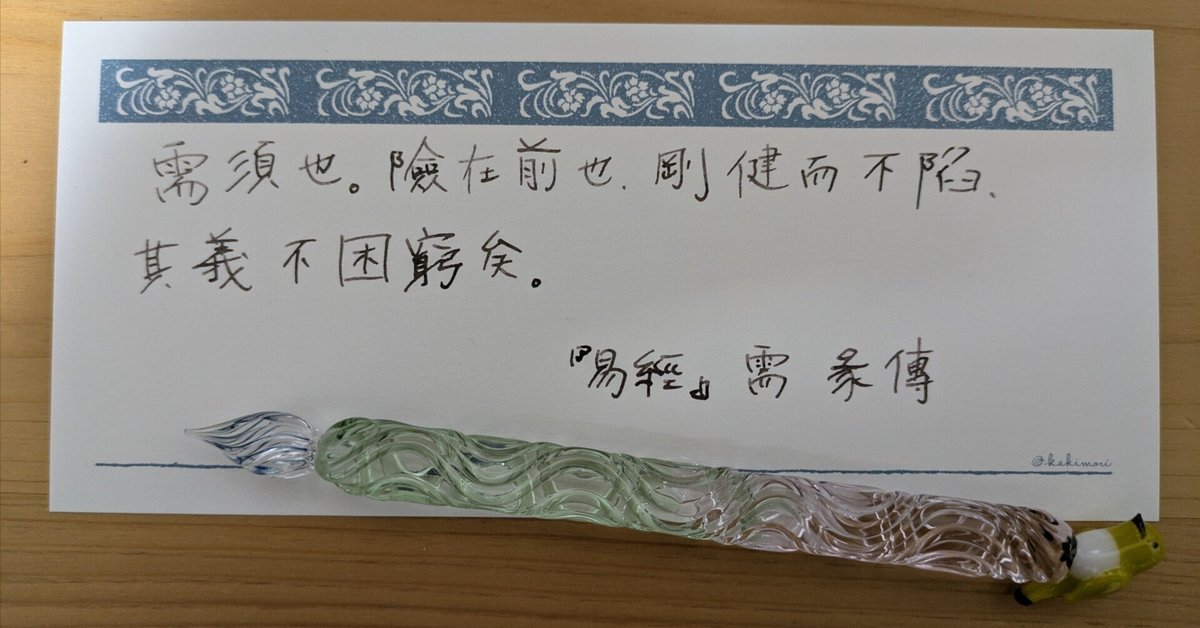 需須也。險在前也、剛健而不陷、
其義不困窮矣。
『易經』需 彖傳
@kakimori